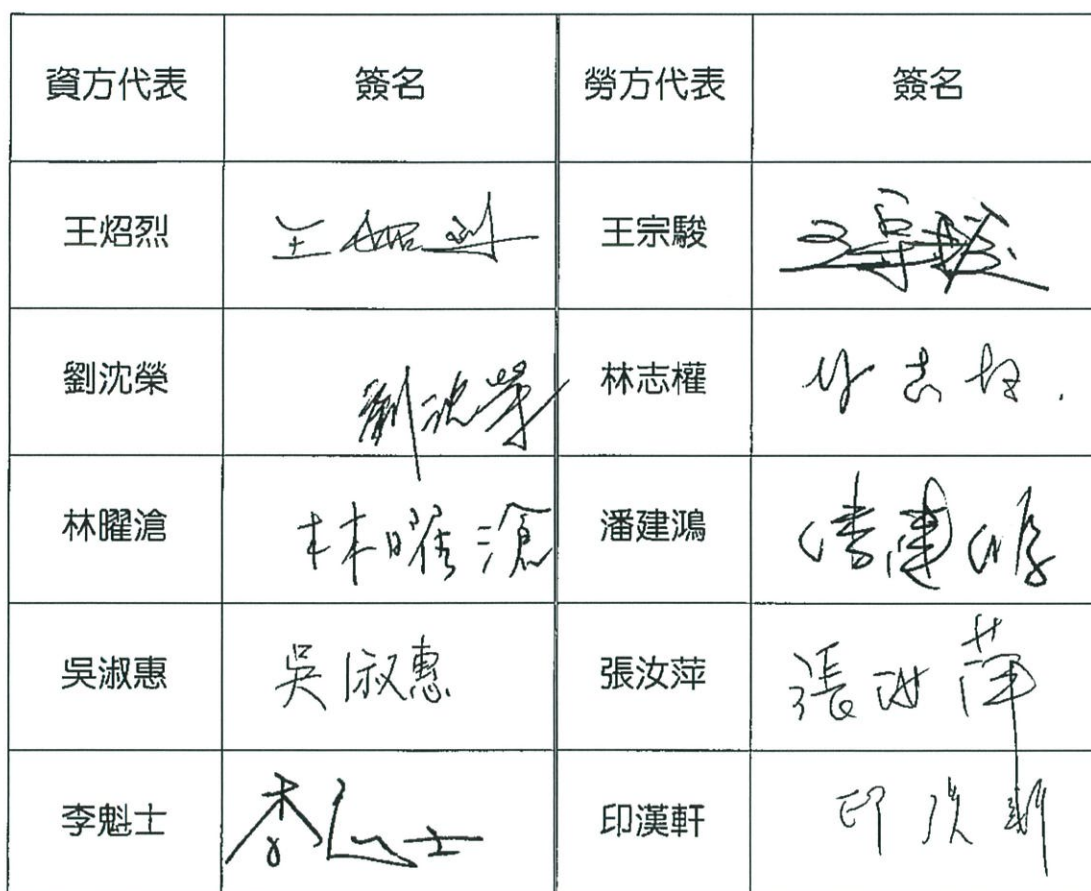 資方代表 簽名 勞方代表 簽名
王炤烈 王炤烈 王宗駿 王宗駿
劉沈榮 劉沈榮 林志權 林志权
林曜滄 林曜滄 潘建鴻 潘建鴻
吳淑惠 吳淑惠 張汝萍 張汝萍
李魁士 李魁士 印漢軒 印漢軒